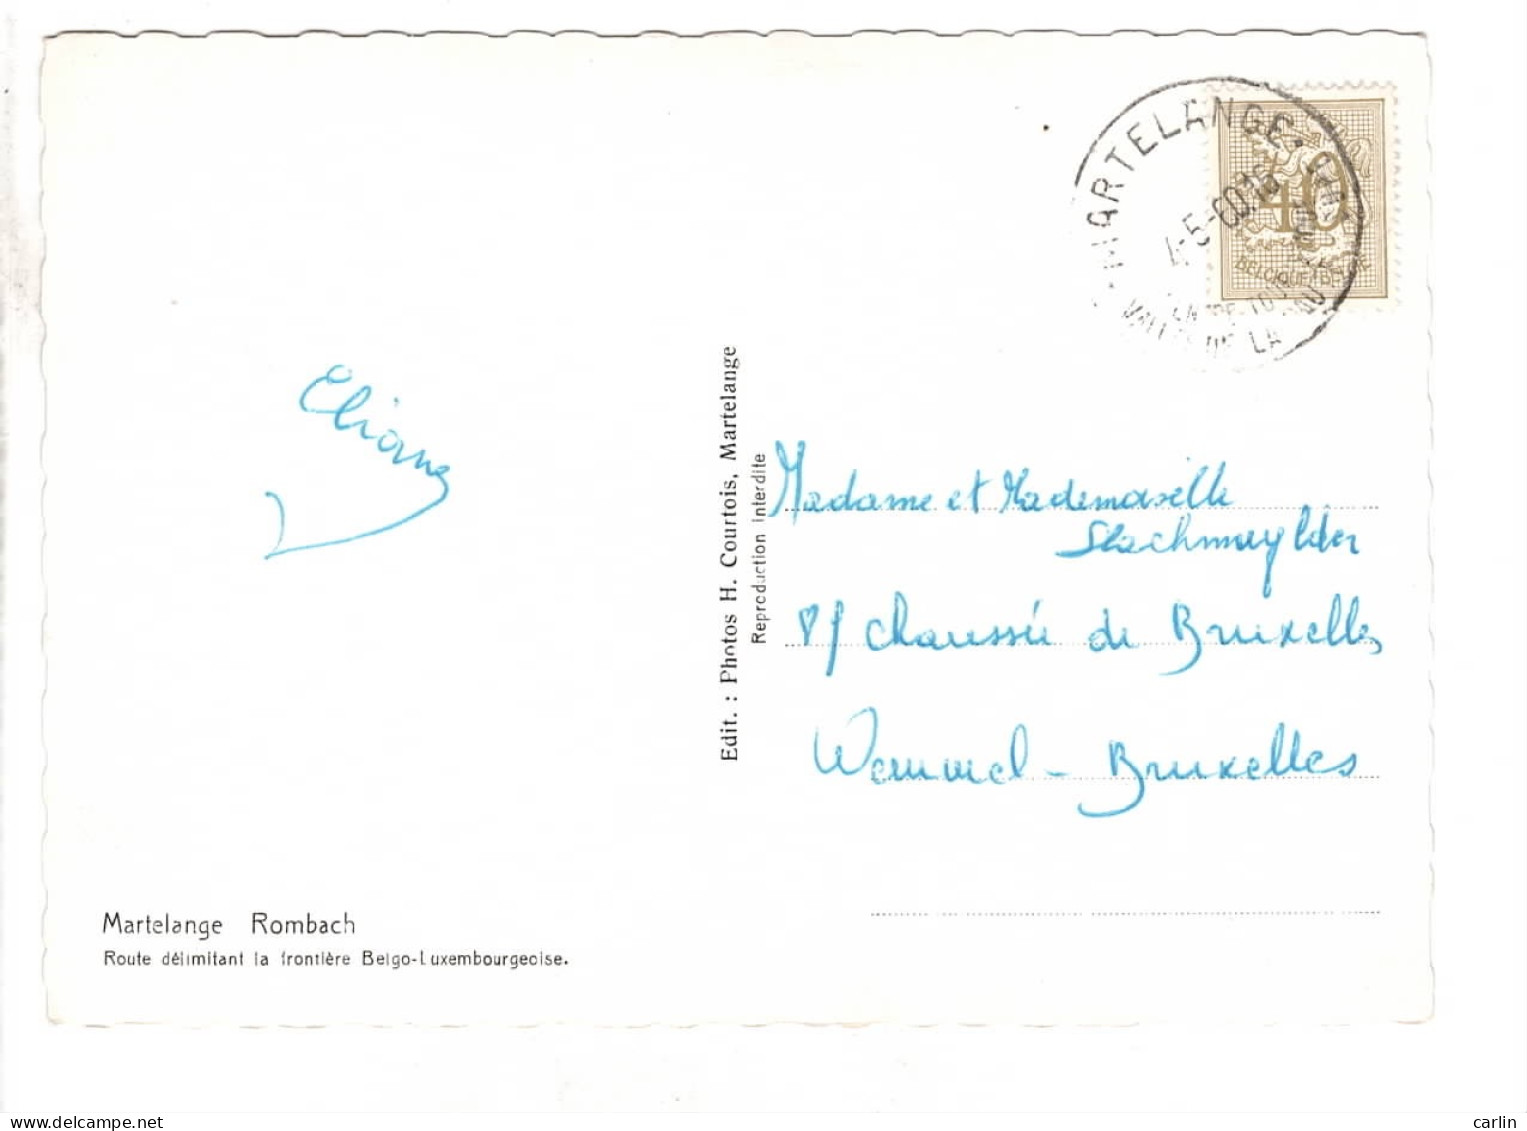 MARTELANGE
4-5-60.16
40
BELGIQUE BELGIE
VALLEE DE LA
Eliane
Edit. : Photos H. Courtois, Martelange
Reproduction interdite
Madame et Mademoiselle
Slachmuylder
chaussée de Bruxelles
Wemmel - Bruxelles
Martelange Rombach
Route délimitant la frontière Belgo-Luxembourgeoise.
www.delcampe.net
carlin